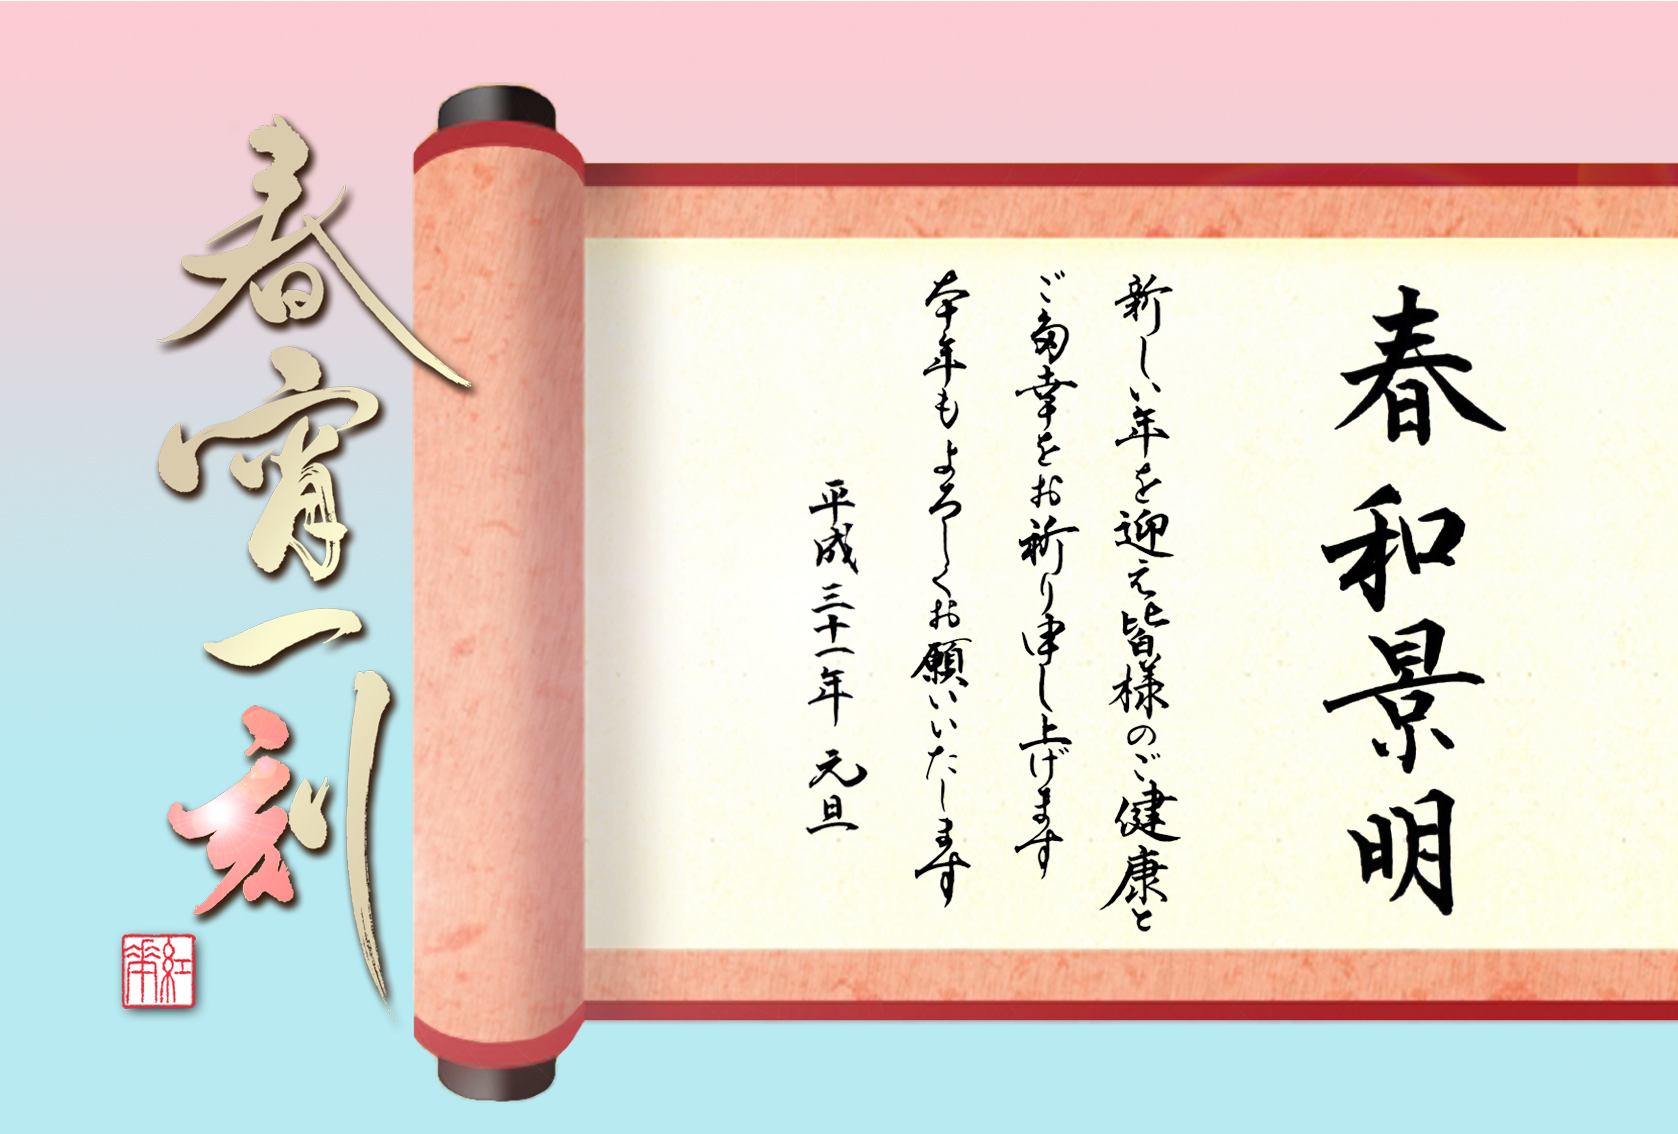 春和景明
新しい年を迎え皆様のご健康と
ご多幸をお祈り申し上げます
本年もよろしくお願いいたします
平成三十一年 元旦
春宵一刻